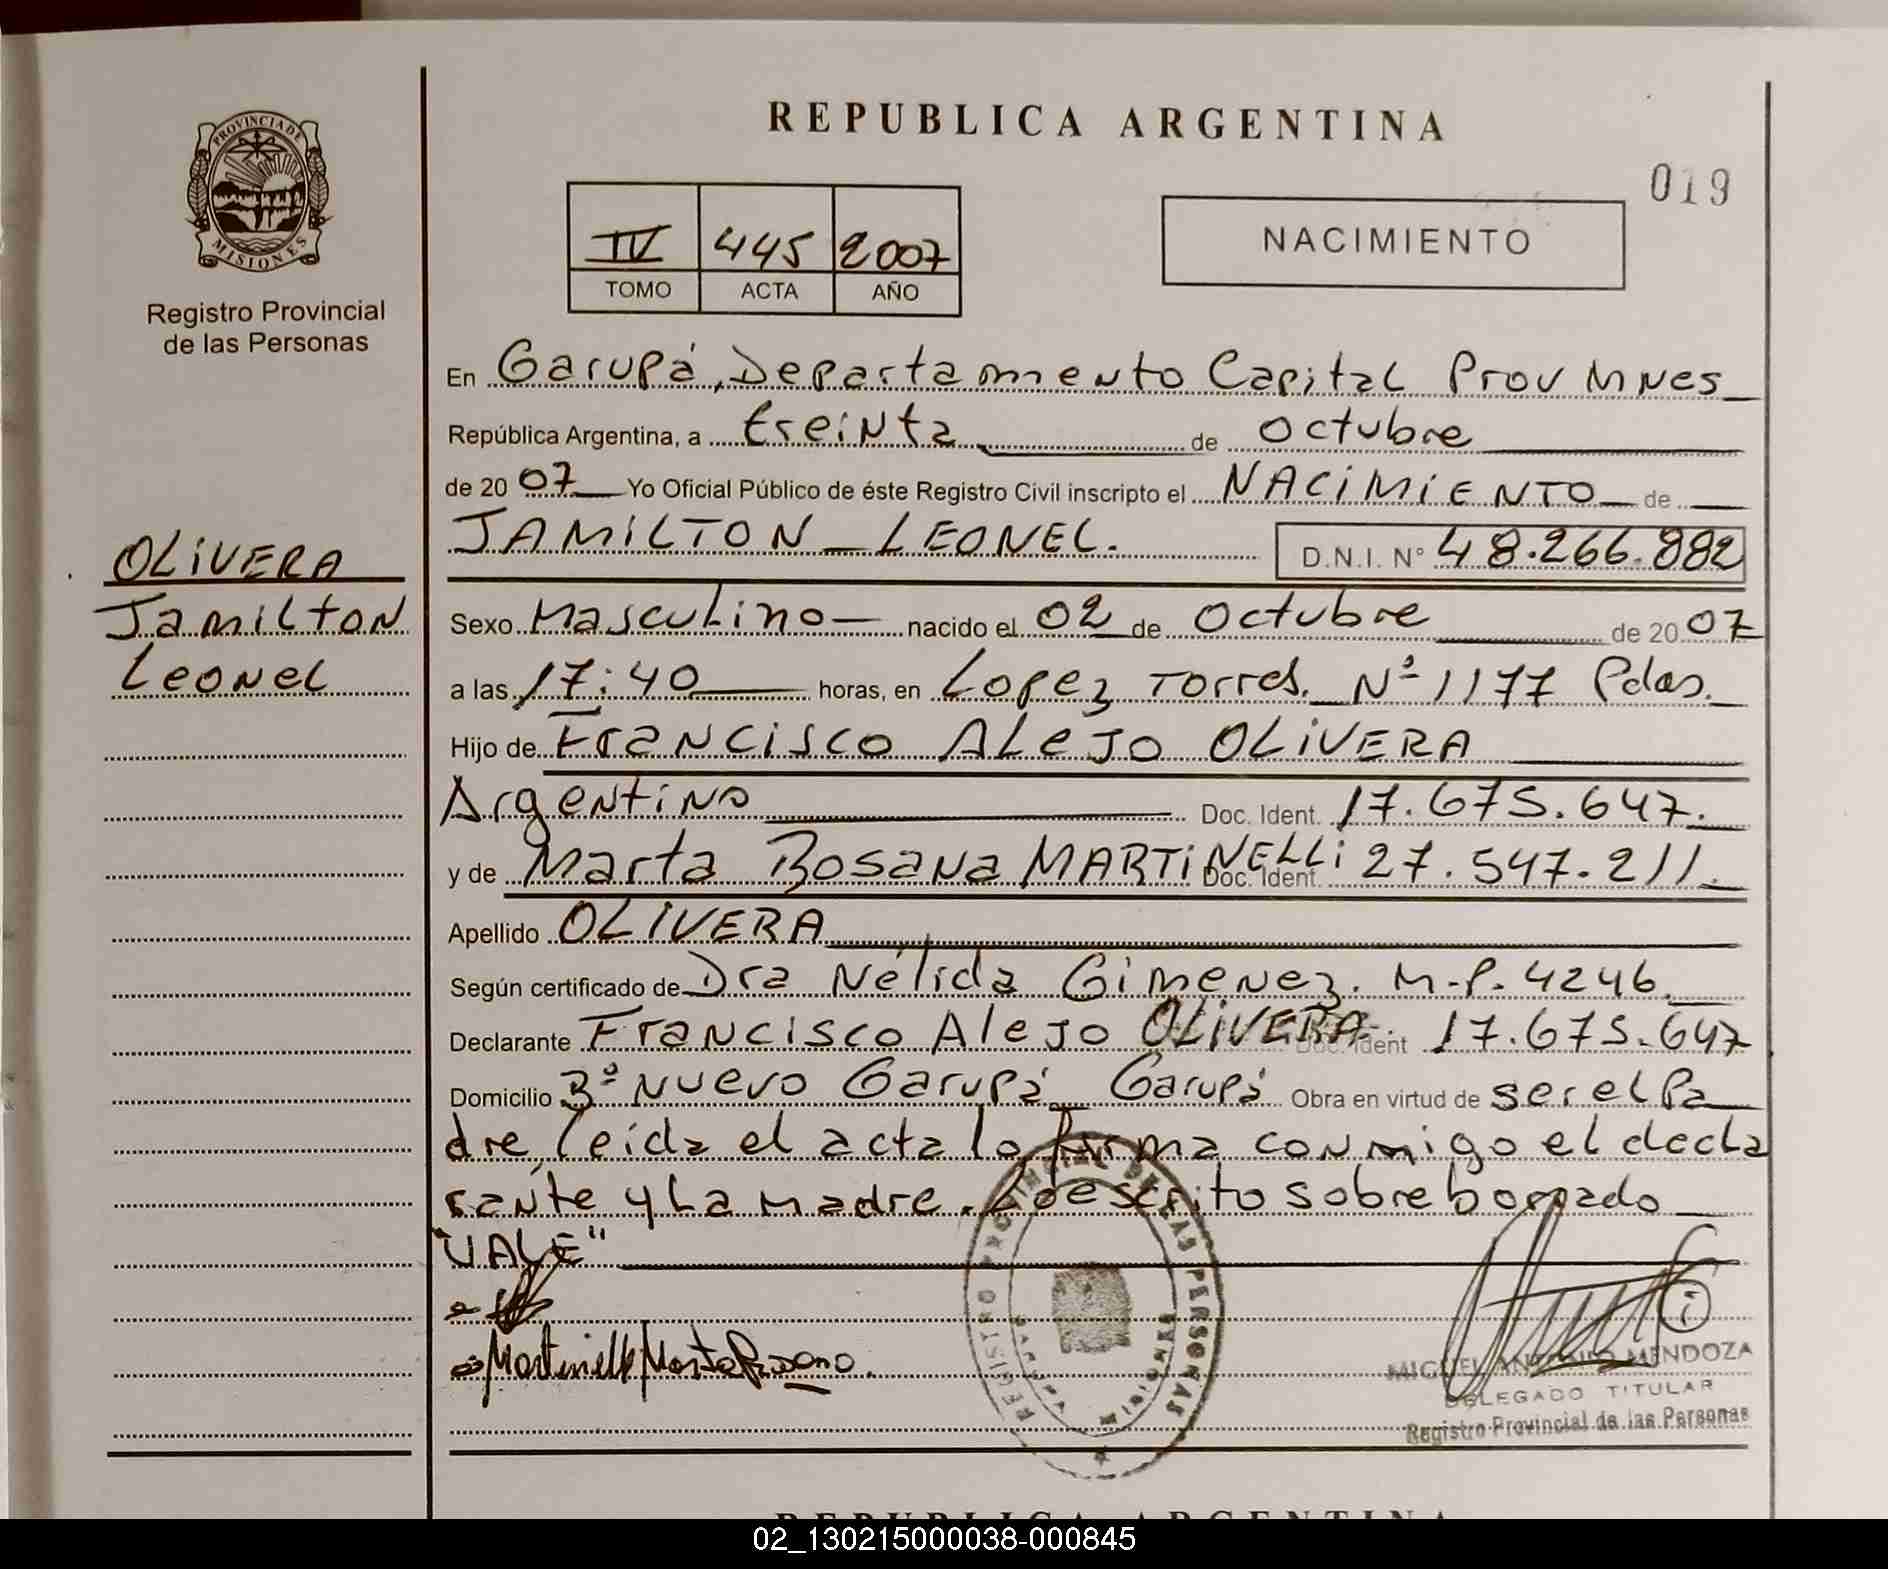 REPUBLICA ARGENTINA
019
PROVINCIA DE
MISIONES
Registro Provincial
de las Personas
IV 445 2007
TOMO ACTA AÑO
NACIMIENTO
En Garupá, Departamento Capital Prov Mnes
República Argentina, a treinta de octubre
de 2007 Yo Oficial Público de éste Registro Civil inscripto el NACIMIENTO de
JAMILTON LEONEL. D.N.I. N° 48.266.882
OLIVERA
Jamilton
Leonel
Sexo Masculino nacido el 02 de Octubre de 2007
a las 17:40 horas, en Lopez Torres. Nº 1177 Pdas.
Hijo de Francisco Alejo OLIVERA
Argentino Doc. Ident. 17.675.647.
y de Marta Rosana MARTINELLI Doc. Ident. 27.547.211
Apellido OLIVERA
Según certificado de Dra Nélida Gimenez. M.P. 4246.
Declarante Francisco Alejo OLIVERA Doc. Ident 17.675.647
Domicilio Bº Nuevo Garupá Garupá Obra en virtud de ser el Pa
dre, leída el acta la firma conmigo el decla
rante y La madre. Lo escrito sobre borrado
"VALE"
Martinelli Marta Rosana.
REGISTRO PROVINCIAL DE LAS PERSONAS
GARUPA
MISIONES
MIGUEL ANTONIO MENDOZA
DELEGADO TITULAR
Registro Provincial de las Personas
REPUBLICA ARGENTINA
02_130215000038-000845